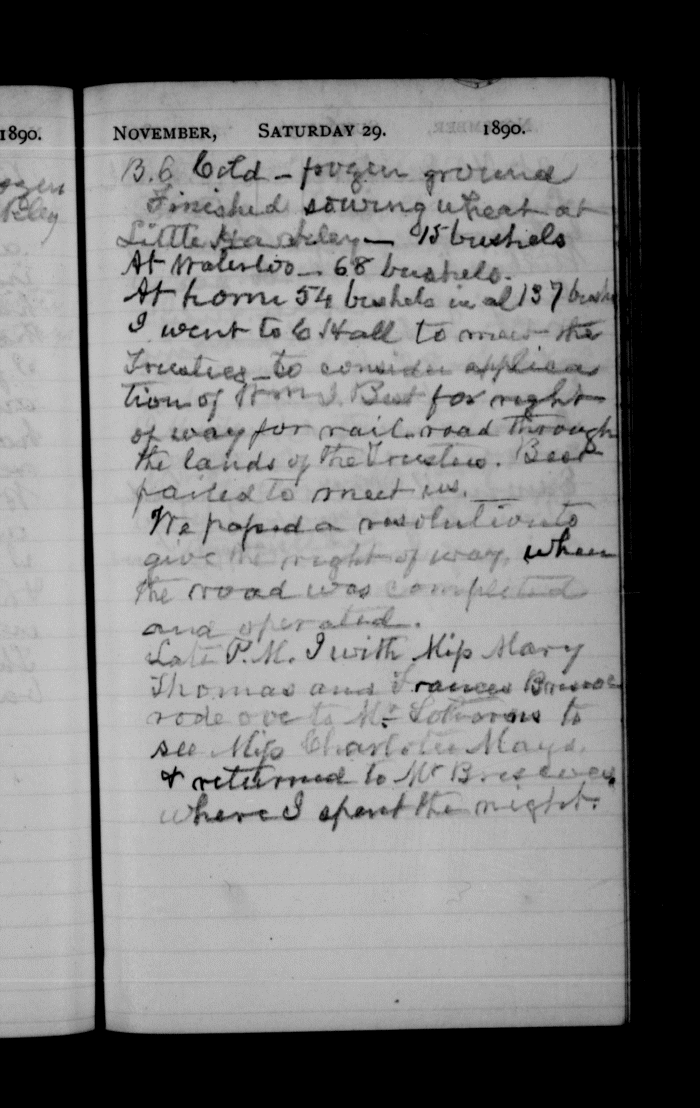 1890.
NOVEMBER, SATURDAY 29. 1890.
B. 6 Cold - frozen ground
Finished sowing wheat at
Little Hackley - 15 bushels
At Waterloo - 68 bushels.
At home 54 bushels in al 137 bush
I went to C Hall to meet the
Trustees to consider applica
tion of Wm J. Best for right
of way for rail road through
the lands of the Trustees. Best
failed to meet us.
We passed a resolution to
give the right of way, when
the road was completed
and operated.
Late P.M. I with Miss Mary
Thomas and Frances Briscoe
rode over to Mr. to
see Miss Charlotte Mays.
& returned to Mr Briscoes,
where I spent the night.